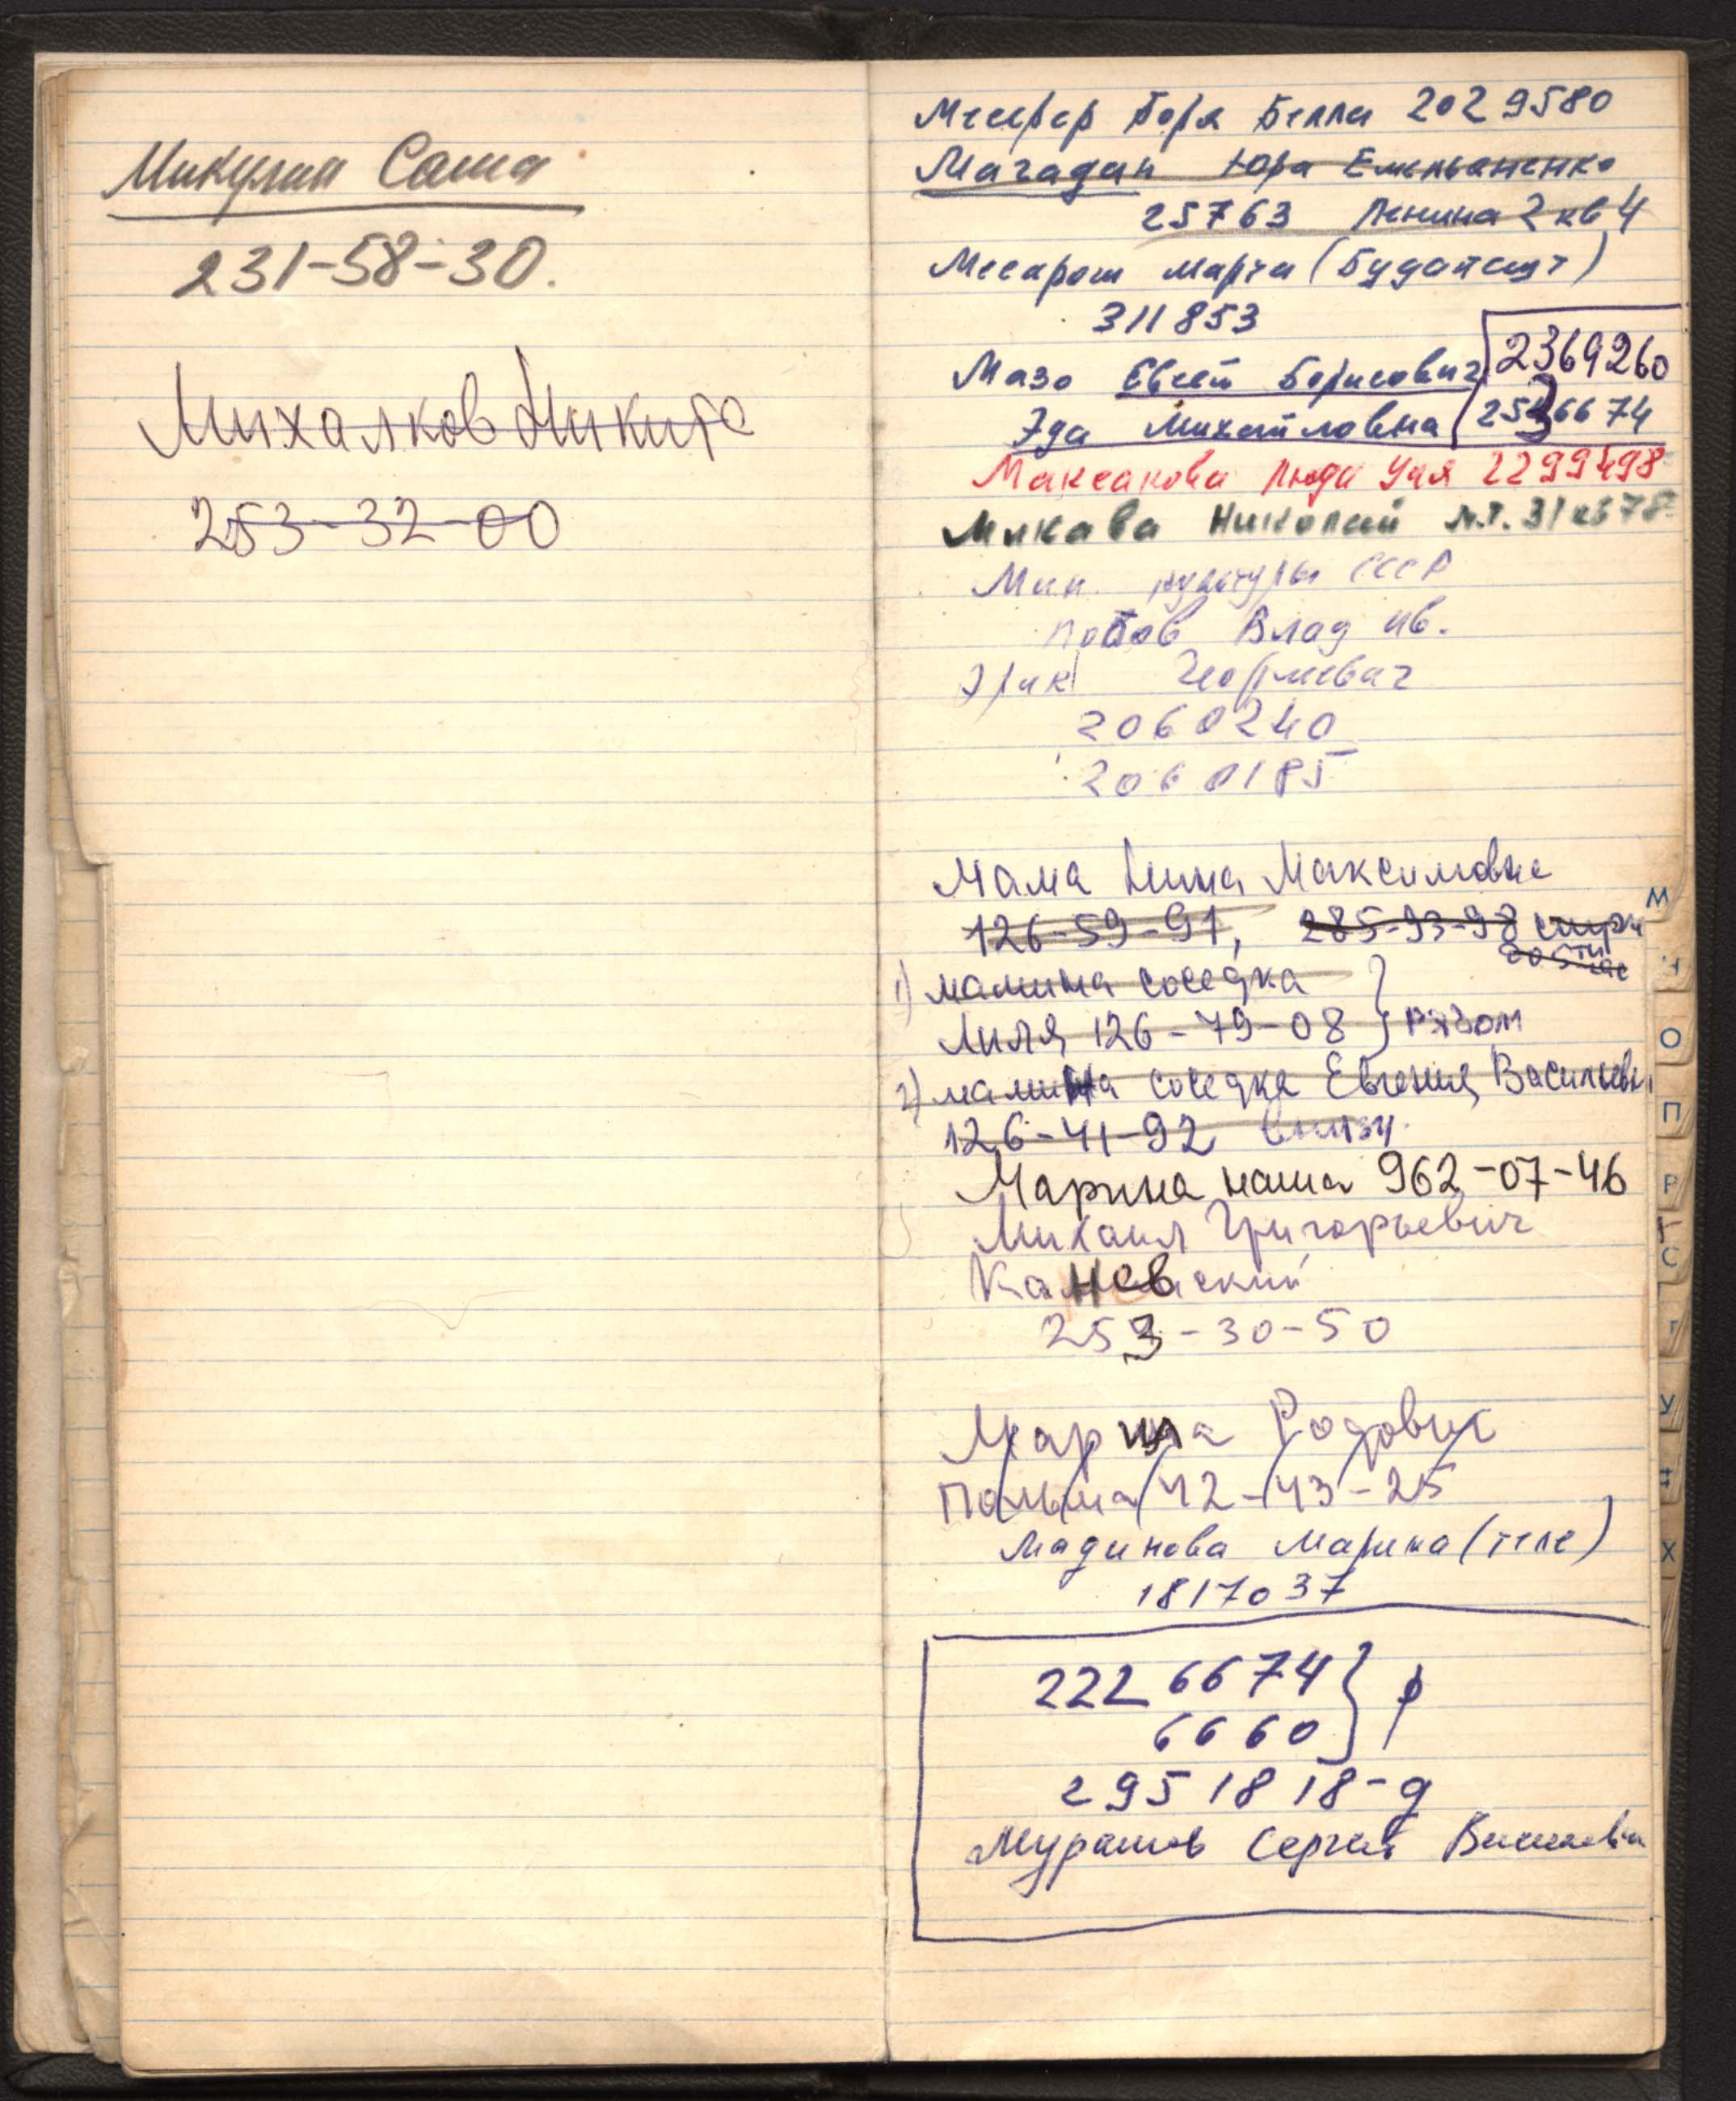 Микулин Саша
231-58-30.
Михалков Никита
253-32-00
Мессерер Боря Белла 202 9580
Магадан Юра Емельяненко
25763 Ленина 2 кв 4
Месарош Марта (Будапешт)
311853
Мазо Евсей Борисович 2369260
Эда Михайловна 2536674
Максакова Люда Уля 2299498
Микава Николай 31 кв 78
Мин. культуры СССР
Попов Влад Ив.
Эрик Георгиевич
2060240
2060185
Мама Нина Максимовна
126-59-91, 285-93-98
1) мамина соседка
Лиля 126-79-08 } рядом
2) мамина соседка Евгения Васильевн
126-41-92 внизу.
Марина наша 962-07-46
Михаил Григорьевич
Каневский
253-30-50
Марина Родович
Польша 42-43-25
Мадинова Марина (теле)
1817037
222 6674 } р
6660
295 18 18-д
Мурашов Сергей
М
О
П
Р
С
Т
У
Х